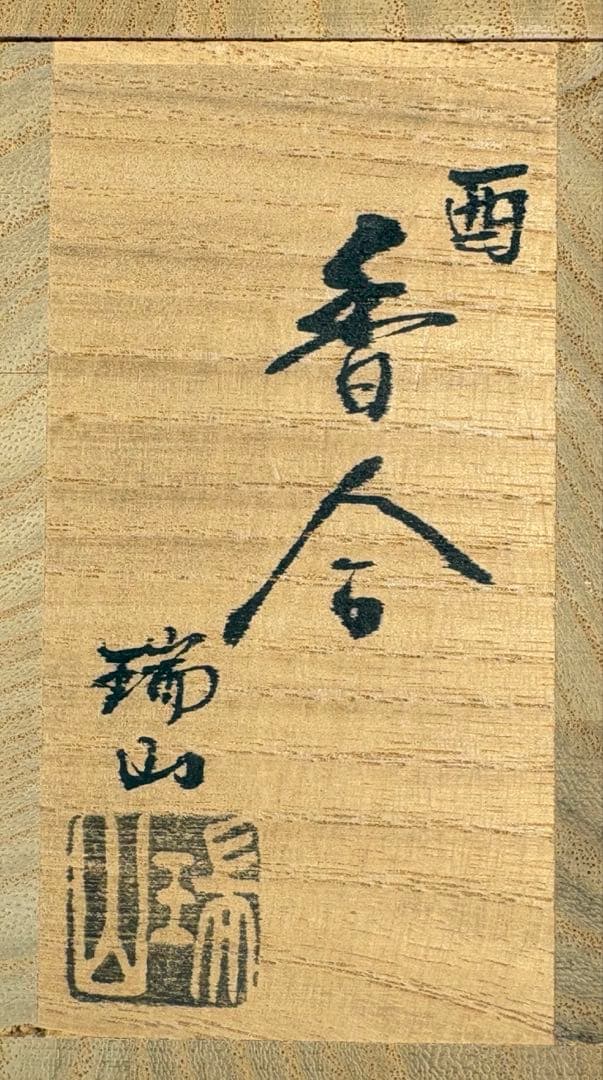 酉
香合
瑞山
瑞山